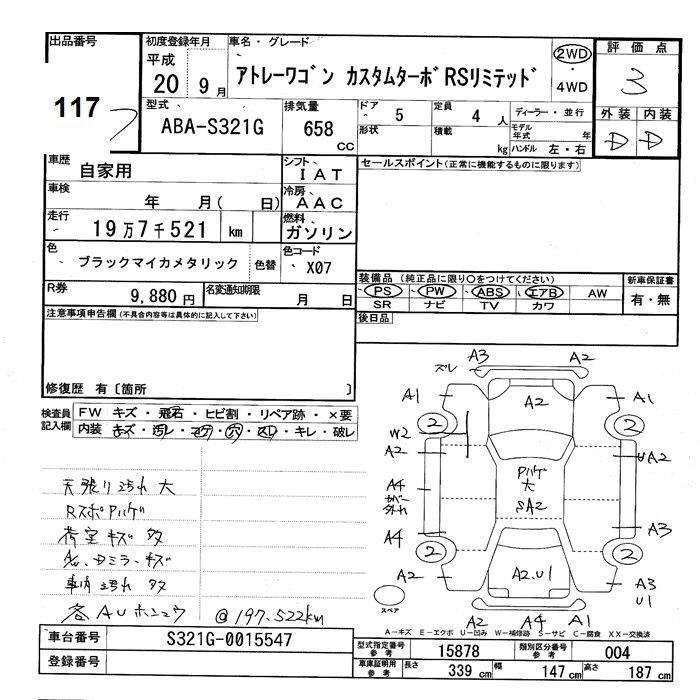 出品番号
117
初度登録年月
平成
20 9月
車名・グレード
アトレーワゴン カスタムターボRSリミテッド
2WD
・
4WD
評価点
3
外装 内装
D D
型式
ABA-S321G
排気量
658
CC
ドア
5
定員
4 人
ディーラー・並行
形状
積載
kg
モデル
年式
年
ハンドル 左・右
車歴
自家用
シフト
IAT
セールスポイント(正常に機能するものに限ります)
車検
年 月( 日)
冷房
AAC
走行
19万7千521 km
燃料
ガソリン
色
ブラックマイカメタリック
色替
色コード
X07
R券
9,880円
名変通知期限
月 日
装備品 (純正品に限り○をつけてください)
PS PW ABS エアB AW
SR ナビ TV カワ
新車保証書
有・無
後日品
注意事項申告欄(不具合内容等は具体的に記入して下さい)
修復歴 有〔箇所 〕
検査員
記入欄
FW キズ・飛石・ヒビ割・リペア跡・×要
内装 キズ・汚レ・コゲ・穴・スレ・キレ・破レ
天張り汚れ 大
RスポPハゲ
荷室キズ 多
車内汚れ 多
各AUホシュウ
@197.522km
ズレ A3 A2
A1 A2 A1
2 2
W2
A2 UA2
Pハゲ
大
SA2
A4
カバー
外れ
A4 A3
2 2
A2 A2.U1 A3
U1
スペア
A2 A4 A1
A-キズ E-エクボ U-凹み W-補修跡 S-サビ C-腐食 XX-交換済
車台番号
S321G-0015547
登録番号
型式指定番号
参考
15878
類別区分番号
参考
004
車庫証明用
参考
長さ
339 cm
幅
147 cm
高さ
187 cm